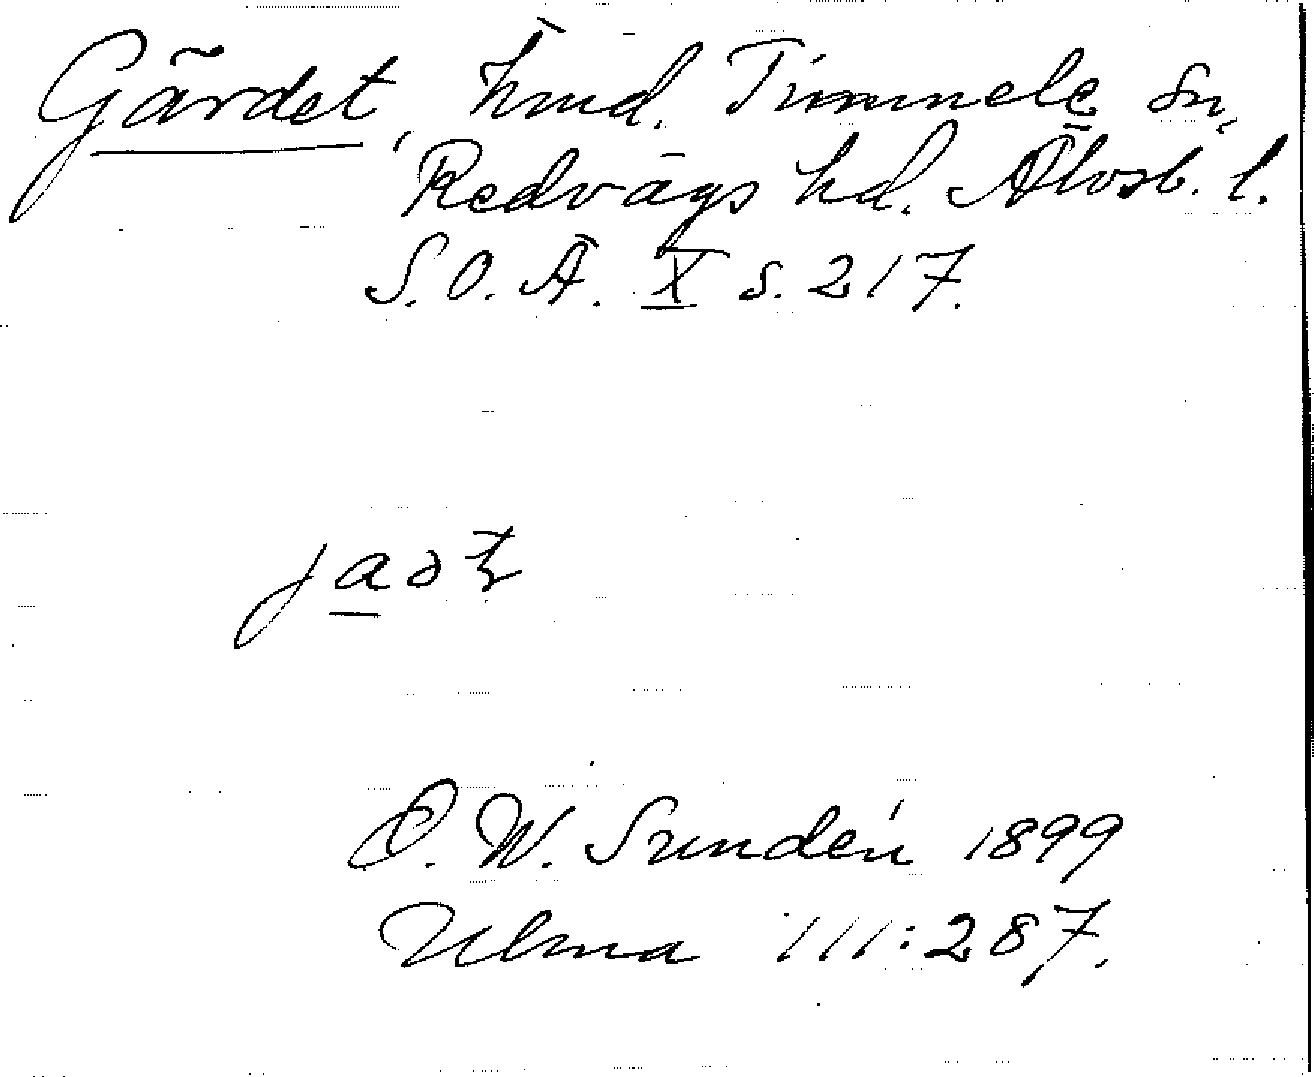 Gärdet, hmd. Timmele sn,
Redvägs hd. Älvsb. l.
S.O.Ä. X s. 217.
D. W. Sundén 1899
Ulma 111:287.